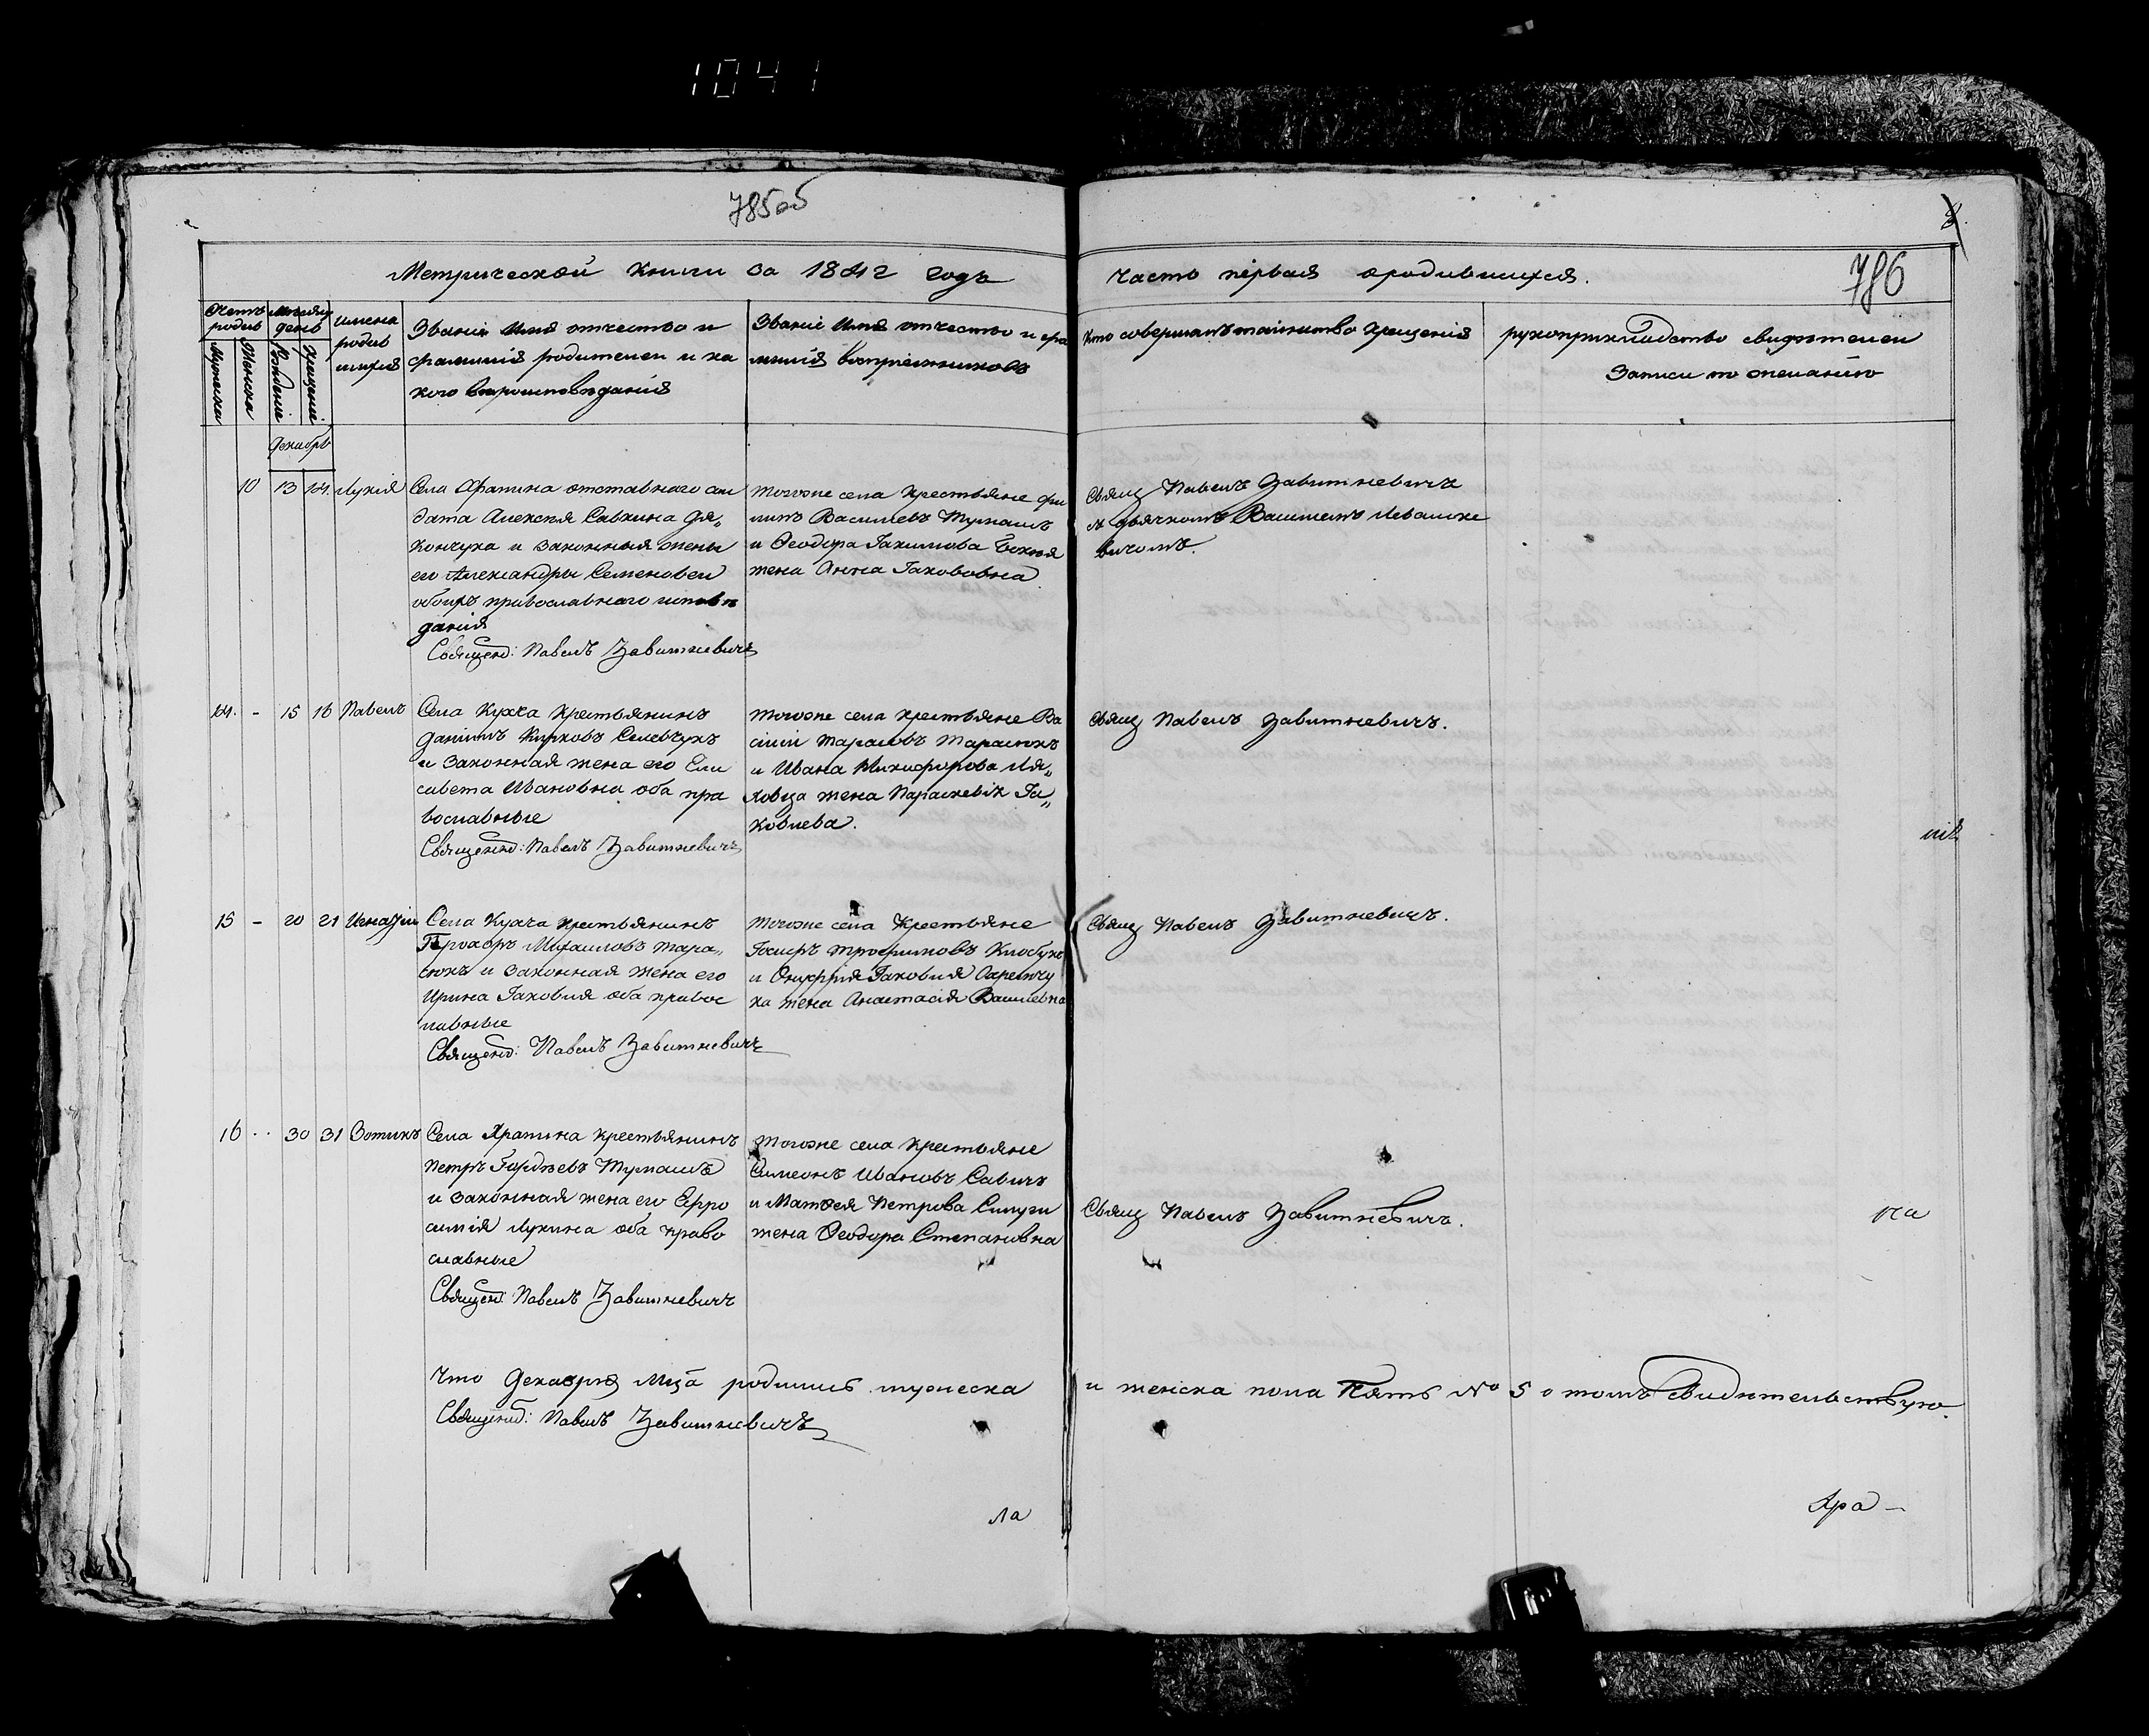 1041
785об
Метрической книги за 1842 годъ
часть первая о родившихся.
786
Счетъ родив
Мужеска
Женска
Месяц день
Рождение
Крещение
имена
родив
шихся
Званіе Имя отчество и
фамилія родителей и ка
кого вероисповѣданія
Званіе Имя отчество и фа
милія воспріемниковъ
Кто совершалъ таинство крещенія
рукоприкладство свидѣтелей
записи по желанію
декабрь
10 13 14. Лукія
Села Храпина отставнаго сол
дата Алексѣя Савкина Дя„
кончука и законныя жены
его Александры Семеновой
обоихъ православнаго исповѣ
данія
Священ: Павелъ Завитневичъ
тогоже села крестьяне Фи
липъ Васильевъ Тумашъ
и Феодора Іакимова
жена Анна Іакововна
Свящ Павелъ Завитневичъ
с дьячкомъ Василіемъ Леванке
вичомъ.
14. - 15 16 Павелъ
Села Кухча крестьянинъ
Даніилъ Селевчукъ
и законная жена его Ели
савета Ивановна оба пра
вославные
Священно: Павелъ Завитневичъ
тогоже села крестьяне Ва
силій Тарасовъ Тарасюкъ
и Ивана Никифорова Ля„
ховца жена Параскевія Іа„
ковлева.
Свящ Павелъ Завитневичъ.
15 - 20 21 Игнатій
Села Кухча крестьянинъ
Михаиловъ Тара„
сюкъ и законная жена его
Ирина Іаковля оба правос
лавные
Священо: Павелъ Завитневичъ
тогоже села Крестьяне
Іосифъ Трофимовъ Клобукъ
и Онуфрія Іаковля Охремчу
ка жена Анастасія Васильевна
Свящ Павелъ Завитневичъ.
16 .. 30 31 Зотикъ
Села Храпина крестьянинъ
Петръ Гордѣевъ Тумашъ
и законная жена его Ефро
синія Лукина оба право
славные
Священ: Павелъ Завитневичъ
тогоже села крестьяне
Симеонъ Ивановъ Савичъ
и Матѳея Петрова
жена Феодора Степановна
Свящ Павелъ Завитневичъ.
Что Декабря Мца родились мужеска
и женска пола Пять № 5 о томъ Свидѣтельствую.
Священо: Павелъ Завитневичъ
ла
Хра -